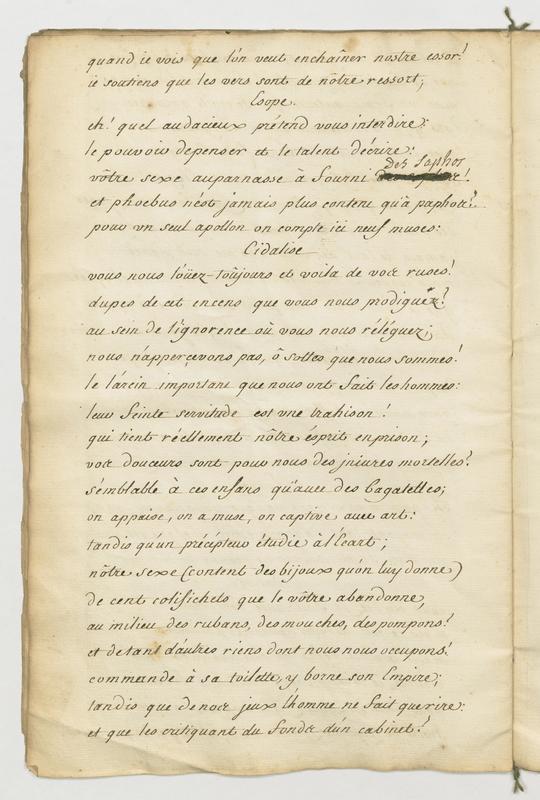 quand ie vois que l'on veut enchaîner nostre essor!
ie soutiens que les vers sont de nôtre ressort;
Esope.
eh! quel audacieux prétend vous interdire:
le pouvoir depenser et le talent décrire:
Des Saphos
vôtre sexe auparnasse à fourni
et phoebus n'est jamais plus content qu'à paphos!
pour vn seul apollon on compte ici neuf muses:
Cidalise
vous nous loüez toûjours et voila de vos ruses!
dupes de cet encens que vous nous prodiguéz!
au sein de l'ignorence où vous nous réléguez;
nous n'apperçevons pas, ô sottes que nous sommes!
le lárcin important que nous ont fait les hommes:
leur feinte servitude est vne trahison!
qui tient réellement nôtre ésprit enprison;
vos douceurs sont pour nous des jnjures mortelles!
sémblable à ces enfans qu'auec des bagatelles;
on appaise, on a muse, on captive avec art:
tandis qu'un précépteur étudie à l'écart;
nôtre sexe (content des bijoux qu'on luy donne)
de cent colifichets que le vôtre abandonne,
au milieu des rubans, des mouches, des pompons!
et de tant d'autres riens dont nous nous occupons!
commande à sa toilette, y borne son Empire;
tandis que de nos jeux l'homme ne fait que rire:
et que les critiquant du fonds d'un cabinet!